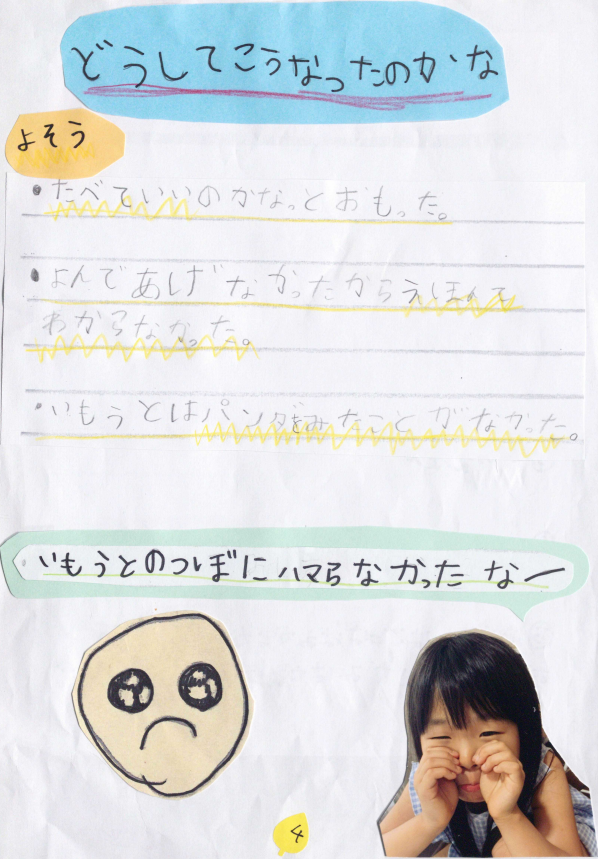 どうしてこうなったのかな
よそう
・たべていいのかなっとおもった。
・よんであげなかったからえほんて
わからなかった。
・いもうとはパンダをみたことがなかった。
いもうとのつぼにハマらなかったなー
4